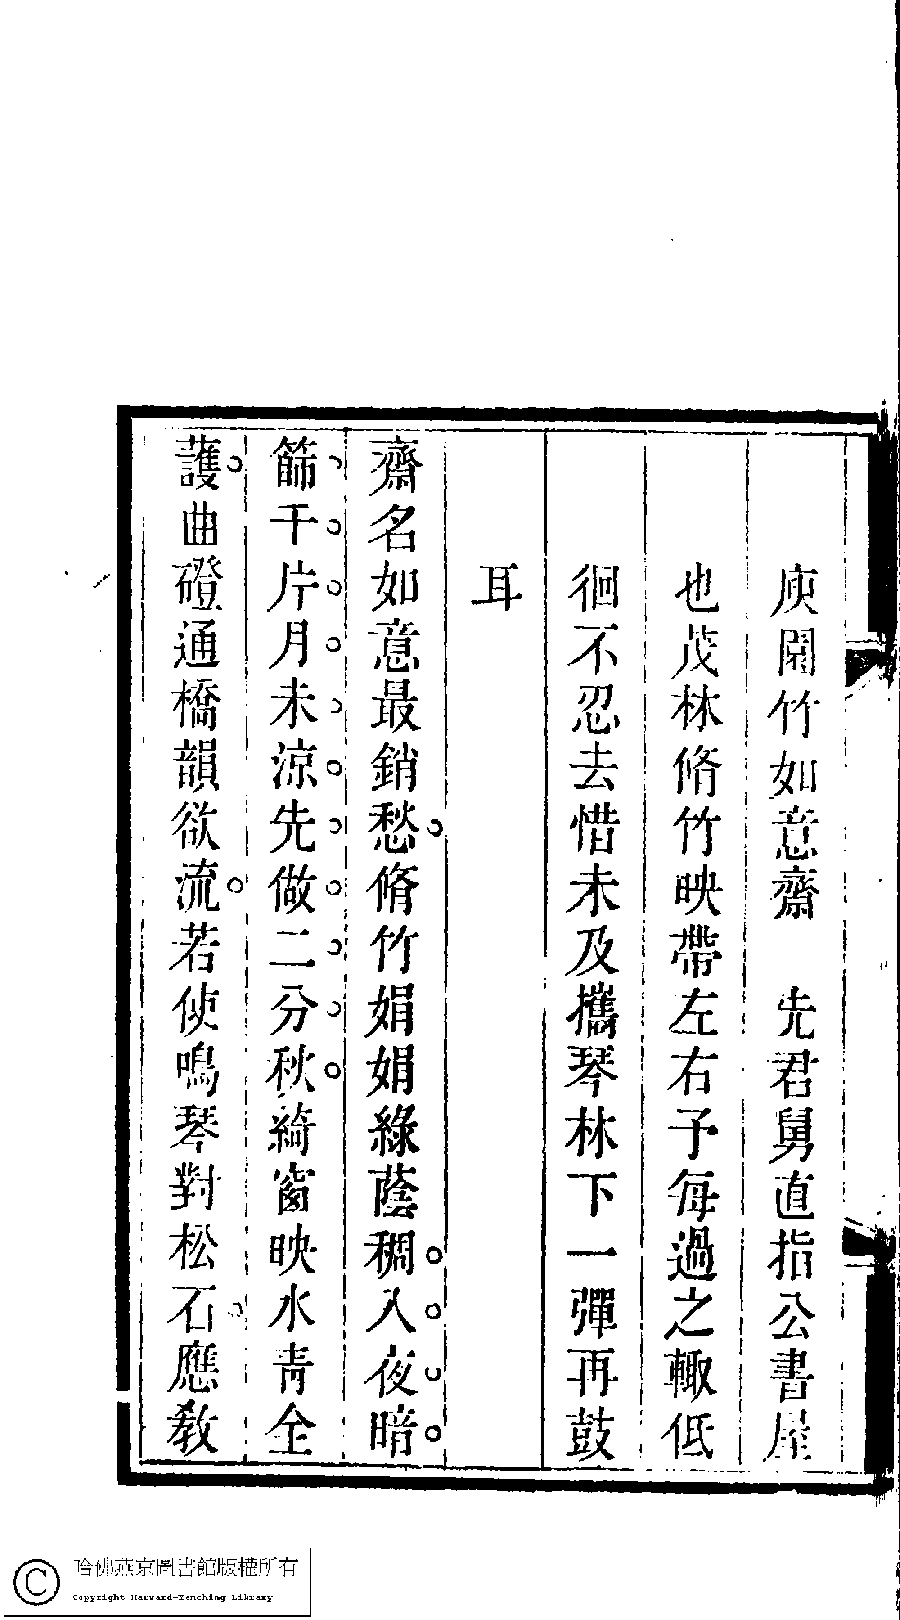 庾園竹如意齋　先君舅直指公書屋
也茂林脩竹映帶左右予每過之輙低
徊不忍去惜未及攜琴林下一彈再鼓
耳
齋名如意最銷愁。脩竹娟娟綠蔭稠。入夜暗
篩千片月未涼先做二分秋。綺窗映水靑全
護。曲磴通橋韻欲流。若使鳴琴對松石應敎
哈佛燕京圖書館版權所有
Copyright Harvard-Yenching Library